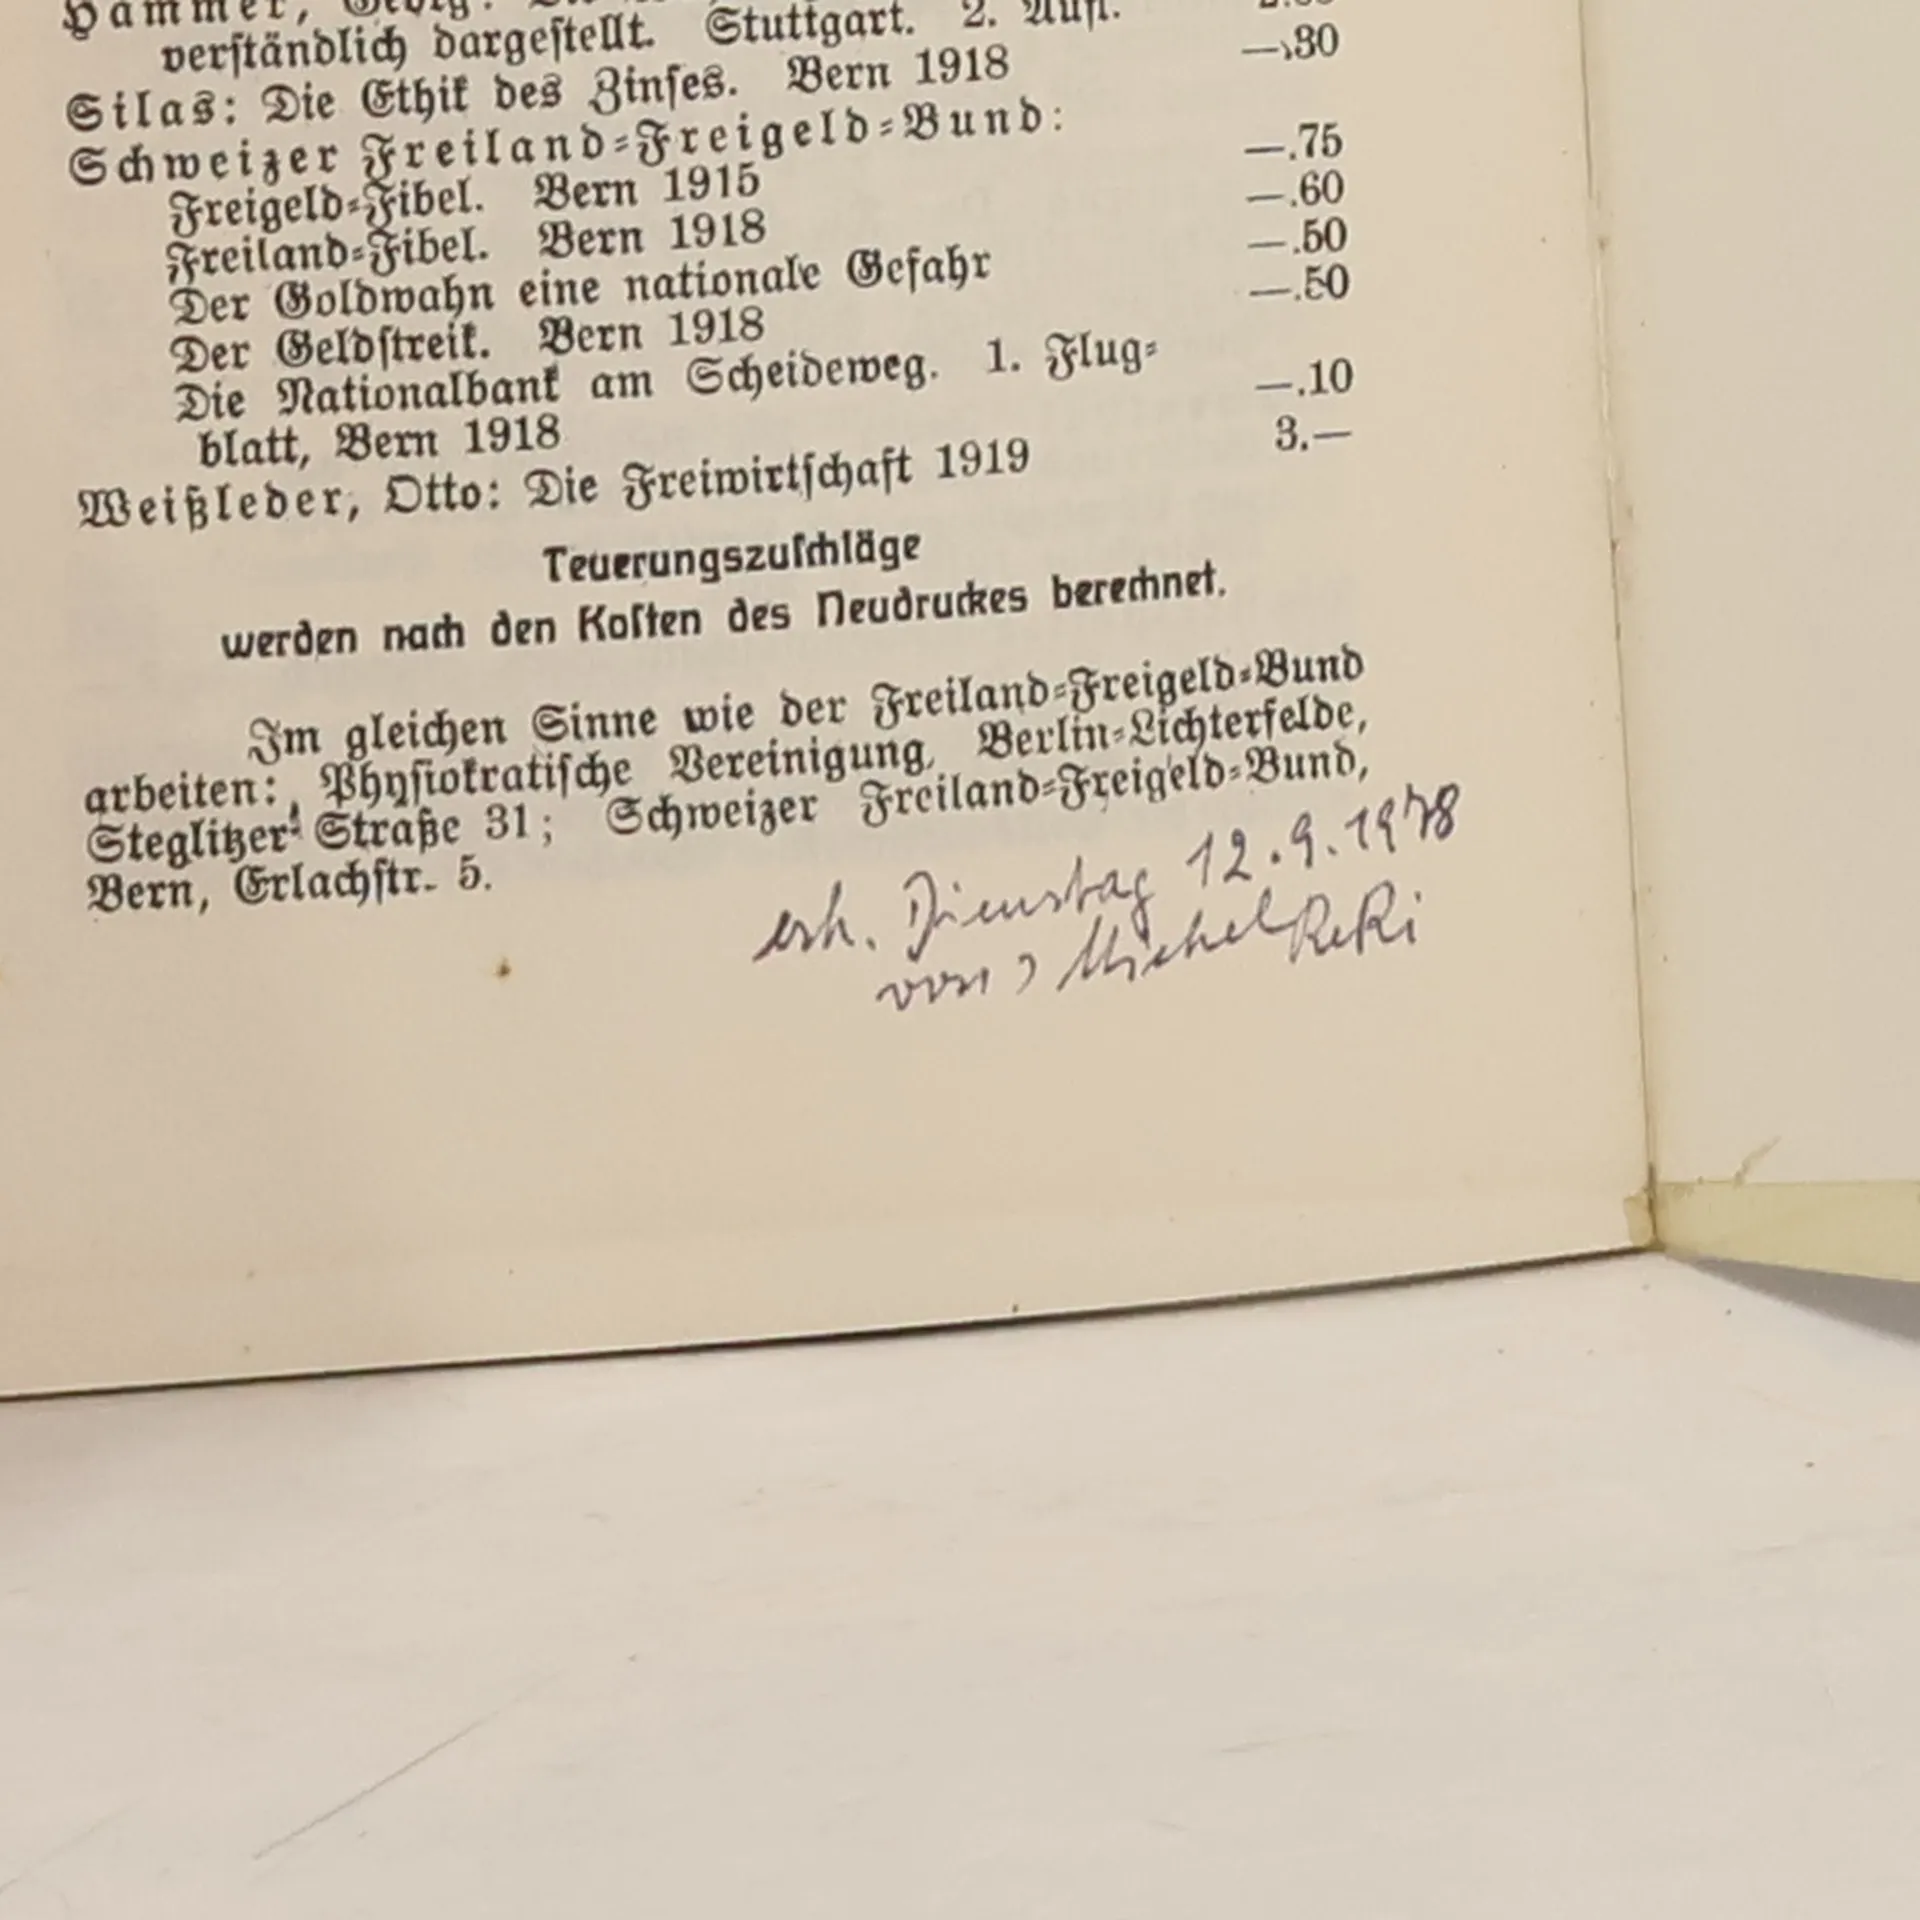 Hammer, Georg:
verständlich dargestellt. Stuttgart. 2. Aufl.
Silas: Die Ethik des Zinses. Bern 1918 —.30
Schweizer Freiland-Freigeld-Bund:
Freigeld-Fibel. Bern 1915 —.75
Freiland-Fibel. Bern 1918 —.60
Der Goldwahn eine nationale Gefahr —.50
Der Geldstreik. Bern 1918 —.50
Die Nationalbank am Scheideweg. 1. Flug-
blatt, Bern 1918 —.10
Weißleder, Otto: Die Freiwirtschaft 1919 3.—
Teuerungszuschläge
werden nach den Kosten des Neudruckes berechnet.
Im gleichen Sinne wie der Freiland-Freigeld-Bund
arbeiten: Physiokratische Vereinigung, Berlin-Lichterfelde,
Steglitzer Straße 31; Schweizer Freiland-Freigeld-Bund,
Bern, Erlachstr. 5.
erh. Dienstag 12.9.1978
von Michel